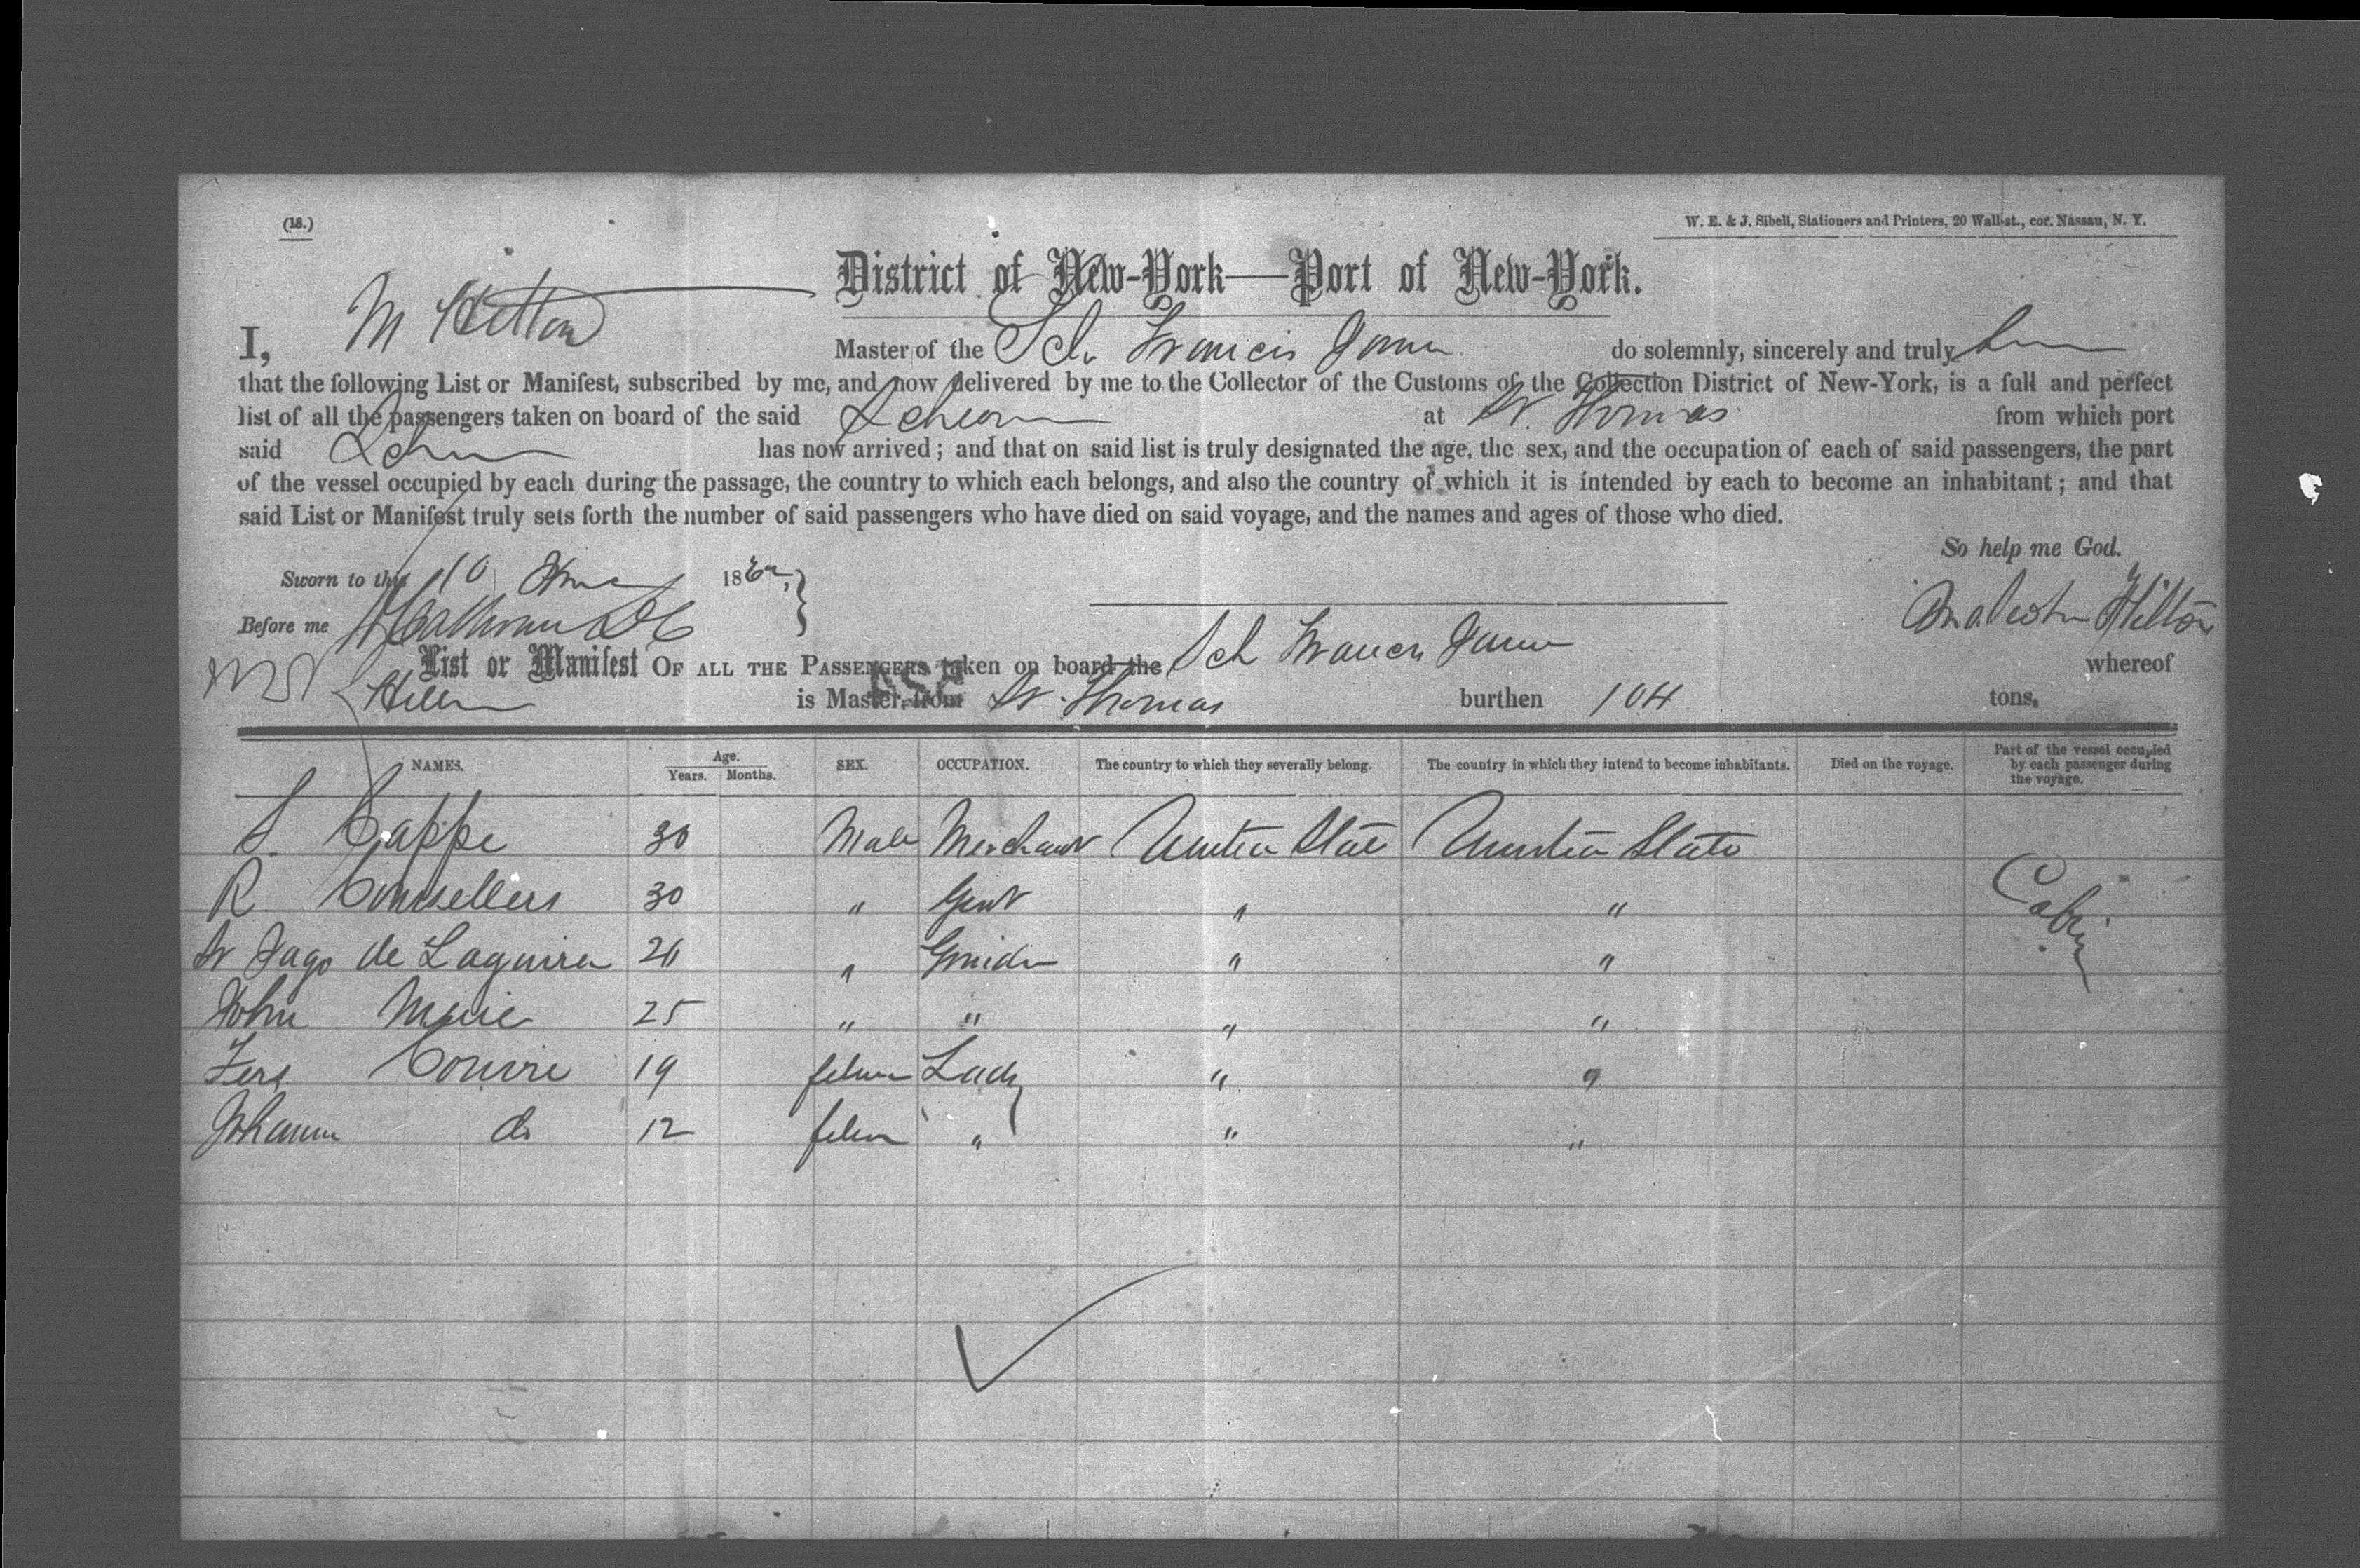 (18.)
W. E. & J. Sibell, Stationers and Printers, 20 Wall-st., cor. Nassau, N. Y.
District of New-York—Port of New-York.
I, M Hilton Master of the Sch Francis Jane do solemnly, sincerely and truly
that the following List or Manifest, subscribed by me, and now delivered by me to the Collector of the Customs of the Collection District of New-York, is a full and perfect
list of all the passengers taken on board of the said at St. Thomas from which port
said has now arrived; and that on said list is truly designated the age, the sex, and the occupation of each of said passengers, the part
of the vessel occupied by each during the passage, the country to which each belongs, and also the country of which it is intended by each to become an inhabitant; and that
said List or Manifest truly sets forth the number of said passengers who have died on said voyage, and the names and ages of those who died.
So help me God.
Sworn to this 10 June 186
Before me
Malcolm Hilton
List or Manifest OF ALL THE PASSENGERS taken on board the Sch Francis Jane whereof
is Master, from St. Thomas burthen 104 tons.
NAMES. Age. Years. Months. SEX. OCCUPATION. The country to which they severally belong. The country in which they intend to become inhabitants. Died on the voyage. Part of the vessel occupied by each passenger during the voyage.
S. Cappe 30 Male Merchant United State United State
R. 30 " Gent " " Cabin
St Jago de Laguira 26 " " "
John 25 " " " "
19 Lady " "
do 12 " " "